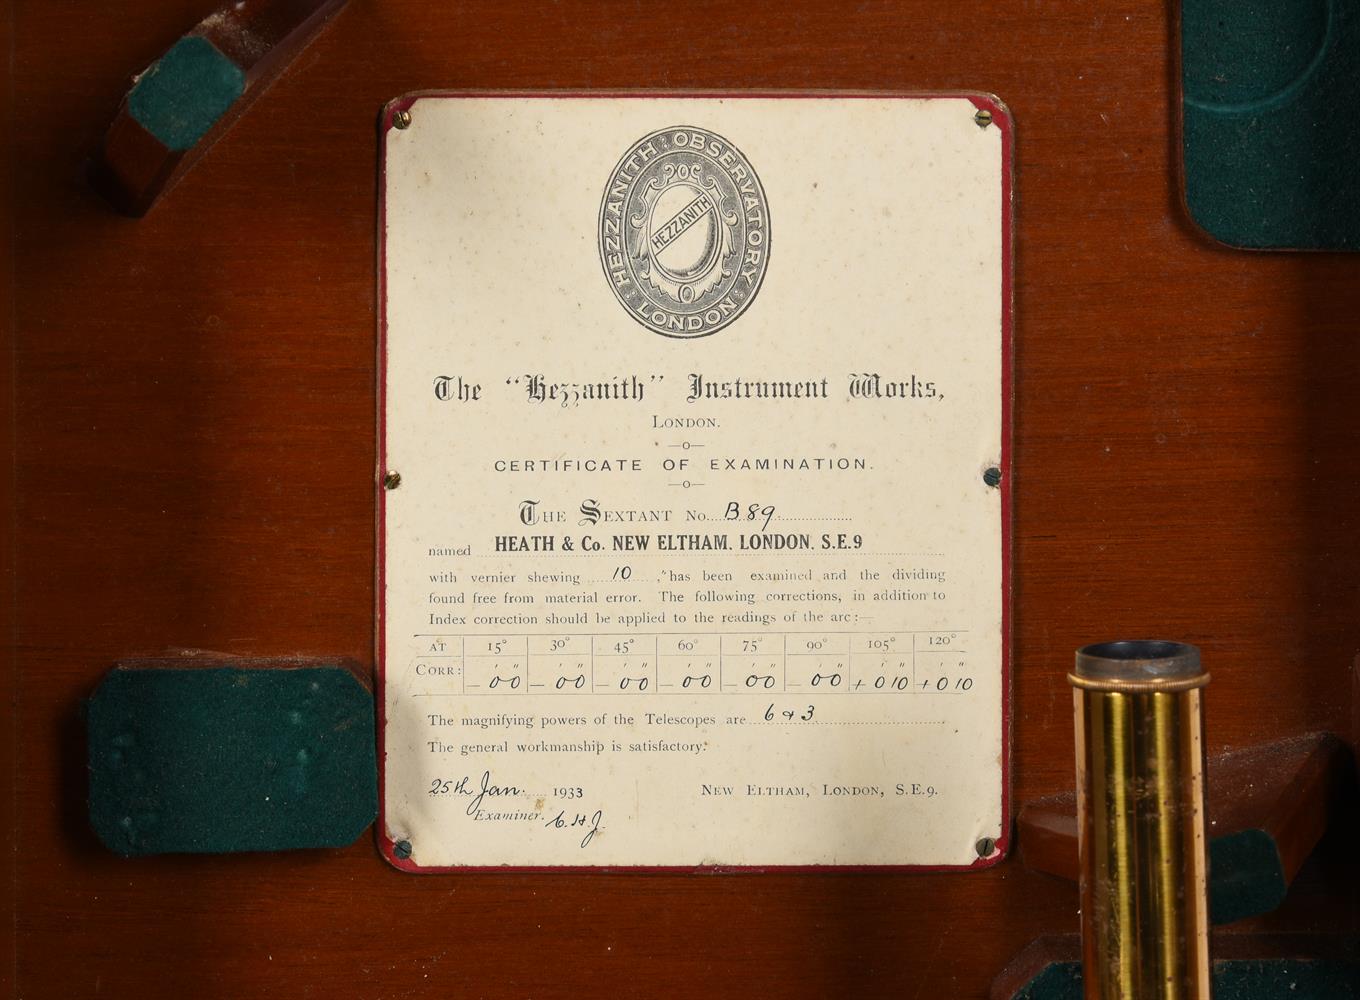 HEZZANITH OBSERVATORY
LONDON
HEZZANITH
The "Hezzanith" Instrument Works,
LONDON.
—o—
CERTIFICATE OF EXAMINATION.
—o—
THE SEXTANT No. B 89
named HEATH & Co. NEW ELTHAM. LONDON. S.E.9
with vernier shewing 10 ," has been examined and the dividing
found free from material error. The following corrections, in addition to
Index correction should be applied to the readings of the arc :—
AT 15° 30° 45° 60° 75° 90° 105° 120°
CORR: ' " ' " ' " ' " ' " ' " ' " ' "
— 0 0 — 0 0 — 0 0 — 0 0 — 0 0 — 0 0 + 0 10 + 0 10
The magnifying powers of the Telescopes are 6 & 3
The general workmanship is satisfactory.
25th Jan. 1933 NEW ELTHAM, LONDON, S.E.9.
Examiner.